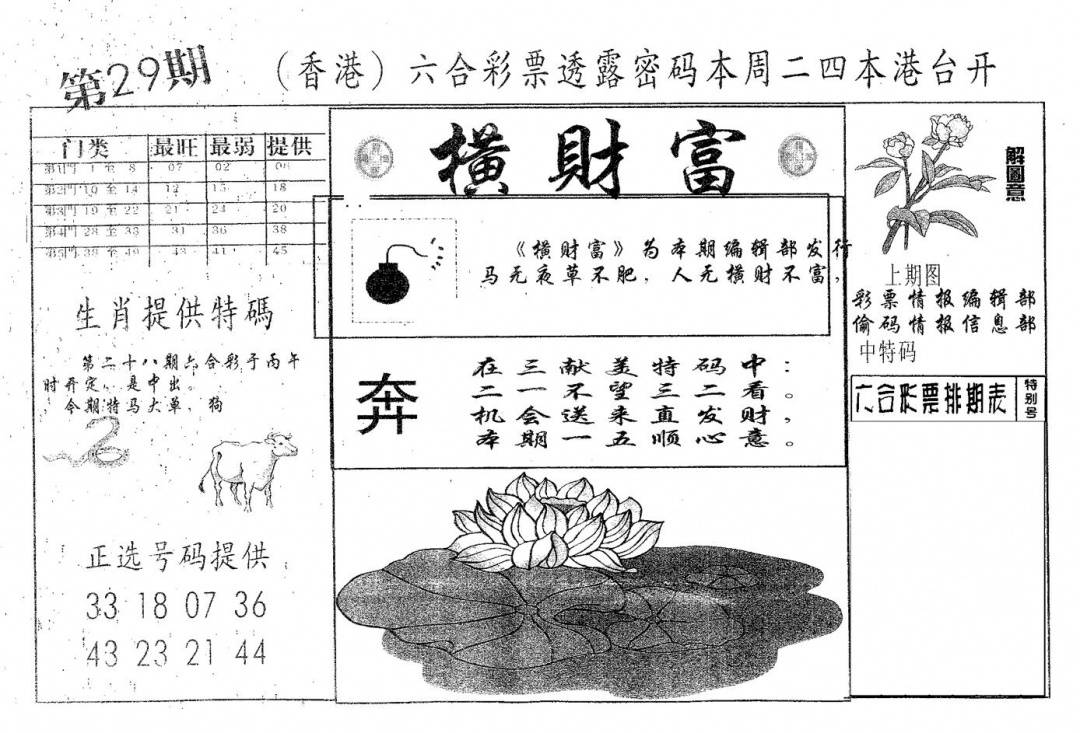 第29期
（香港）六合彩票透露密码本周二四本港台开
门类 最旺 最弱 提供
第1门 1 至 8 07 02 06
第2门 10 至 14 12 15 18
第3门 19 至 22 21 24 20
第4门 28 至 33 31 36 38
第5门 38 至 49 43 41 45
生肖提供特碼
第二十八期六合彩于丙午
时开定，是中出。
，令期特马大单，狗
正选号码提供
33 18 07 36
43 23 21 44
橫財富
《横财富》为本期编辑部发行
马无夜草不肥，人无横财不富，
奔
在三献美特码中：
二一不望三二看。
机会送来直发财，
本期一五顺心意。
解圖意
上期图
彩票情报编辑部
偷码情报信息部
中特码
六合彩票排期表
特别号